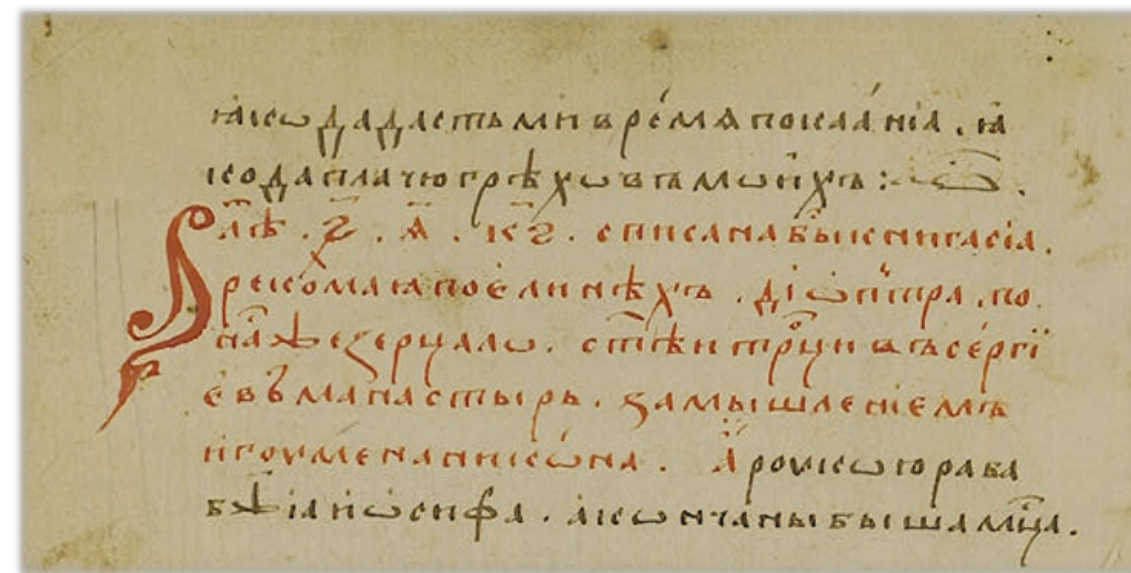 ꙗкѡ да дасть ми врéмѧ покаа́нїа . ꙗ
ко да плачю грѣхѡвъ мѡи́хъ :
Лⷮѣ . ҂ѕ҃ . ц҃ . к҃ѕ . списана бы́ книга сїа .
рекомаꙗ по є́линѣхъ . дїѡ́птра . по
на́ же зерцало . ст҃ѣи трⷪ҇ци въ се́ргї
є́вѣ манастырь . замышленїемъ
и҆гоумена никѡ́на . А҆ роукою раба
бж҃їа и҆ѡ́сифа . а҆кѡнчаны бышa мⷭ҇ца .